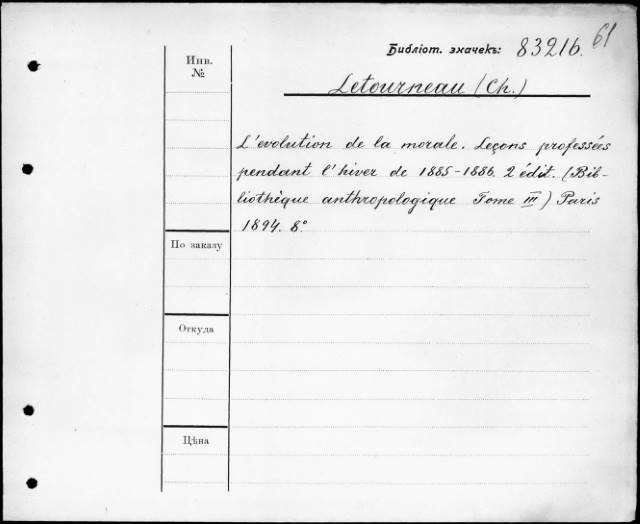 61
Библіот. значекъ: 83216.
Инв.
№
Letourneau (Ch.)
L'evolution de la morale. Leçons professées
pendant l'hiver de 1885-1886. 2 édit. (Bib-
liothèque anthropologique Tome III) Paris
1894. 8°
По заказу
Откуда
Цѣна